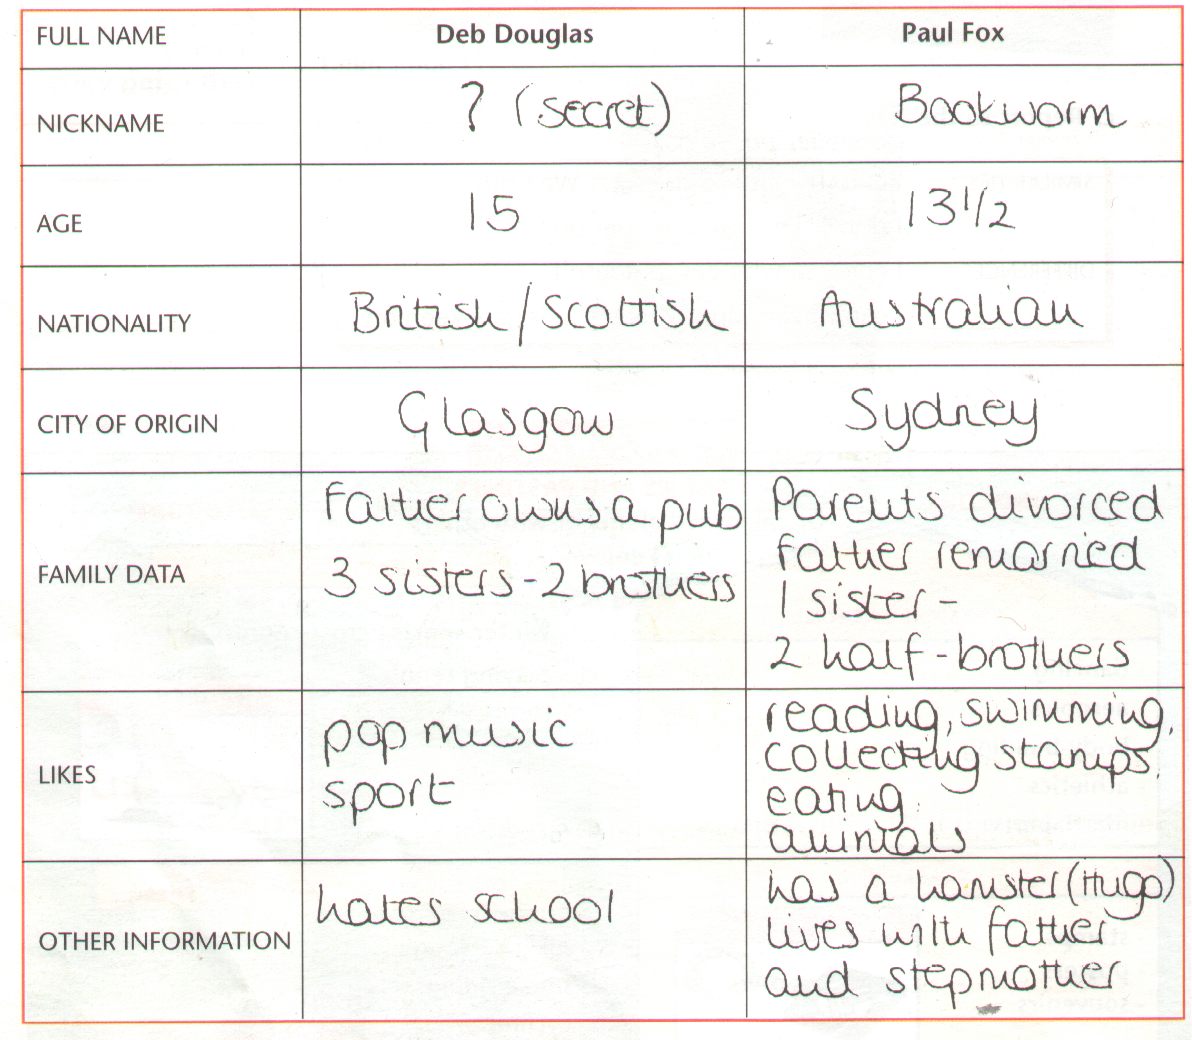 FULL NAME Deb Douglas Paul Fox
NICKNAME ? (secret) Bookworm
AGE 15 13 1/2
NATIONALITY British / Scottish Australian
CITY OF ORIGIN Glasgow Sydney
FAMILY DATA
Father owns a pub
3 sisters - 2 brothers
Parents divorced
Father remarried
1 sister -
2 half-brothers
LIKES
pop music
sport
reading, swimming,
collecting stamps,
eating
animals
OTHER INFORMATION
hates school
has a hamster (Hugo)
lives with father
and stepmother